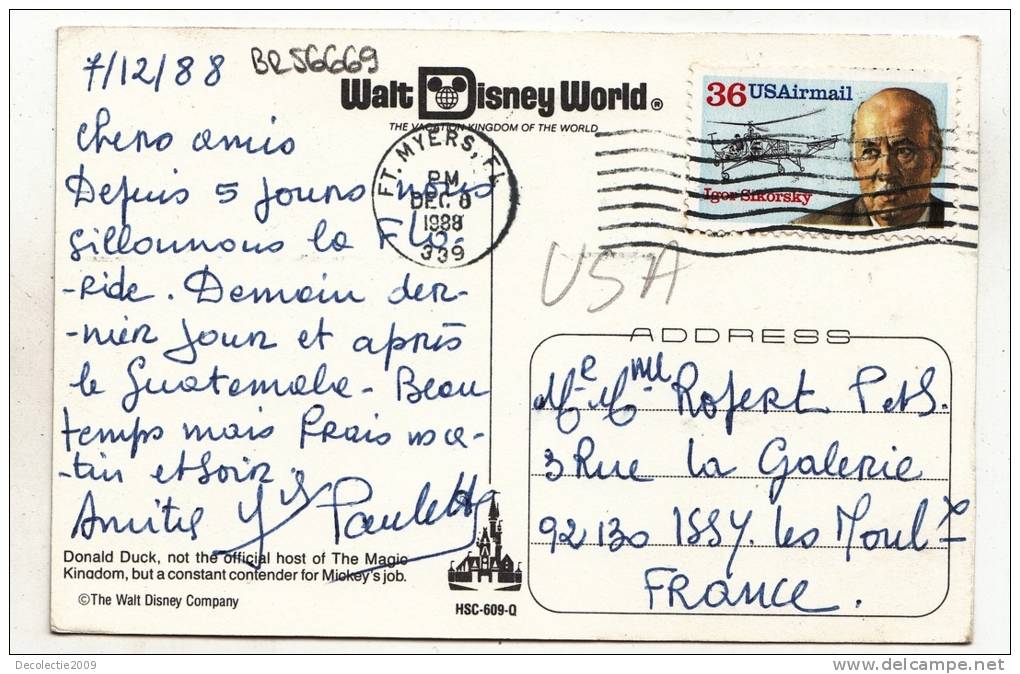 7/12/88
BR56669
Walt Disney World ®
THE VACATION KINGDOM OF THE WORLD
36 USAirmail
Igor Sikorsky
FT. MYERS, FL
PM
DEC 8
1988
339
USA
Chers amis
Depuis 5 jours nous
sillonnons la Flo-
-ride. Demain der-
-nier jour et après
le Guatemala - Beau
temps mais frais ma-
-tin et soir.
Amitiés Paulette
Donald Duck, not the official host of The Magic
Kingdom, but a constant contender for Mickey's job.
©The Walt Disney Company
HSC-609-Q
ADDRESS
Mr Mme Rofert P et S.
3 Rue La Galerie
92130 ISSY. les Moulx
FRANCE.
Decolectie2009
delcampe.net